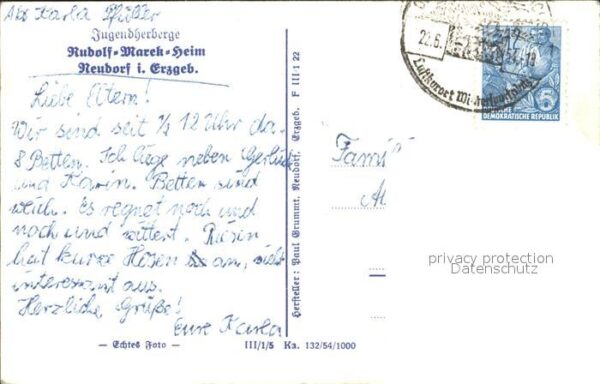 Abs. Karla Pfüller
Jugendherberge
Rudolf-Marek-Heim
Neudorf i. Erzgeb.
Liebe Eltern!
Wir sind seit ½ 12 Uhr da.
8 Betten. Ich liege neben Gerlinde
und Karin. Betten sind
weich. Es regnet noch und
noch und
hat kurze Hosen an, sieht
interessant aus.
Herzliche Grüße!
Eure Karla
— Echtes Foto —
III/1/5 Ka. 132/54/1000
Hersteller: Paul Grummt, Neudorf, Erzgeb. F III/1 22
22.6.
Luftkurort
5
DEMOKRATISCHE REPUBLIK
Fami
privacy protection
Datenschutz